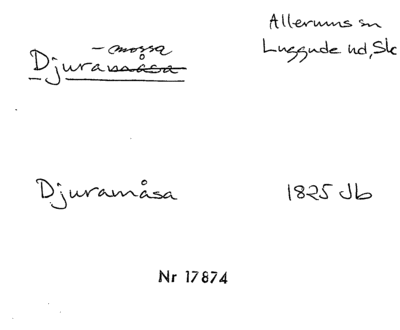 Allerums sn
-mossa
Luggude hd, Sk
Djuramåsa
Djuramåsa 1825 Jb
Nr 17874